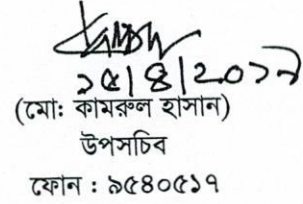 ১৫/৪/২০১৭
(মোঃ কামরুল হাসান)
উপসচিব
ফোন : ৯৫৪০৫১৭